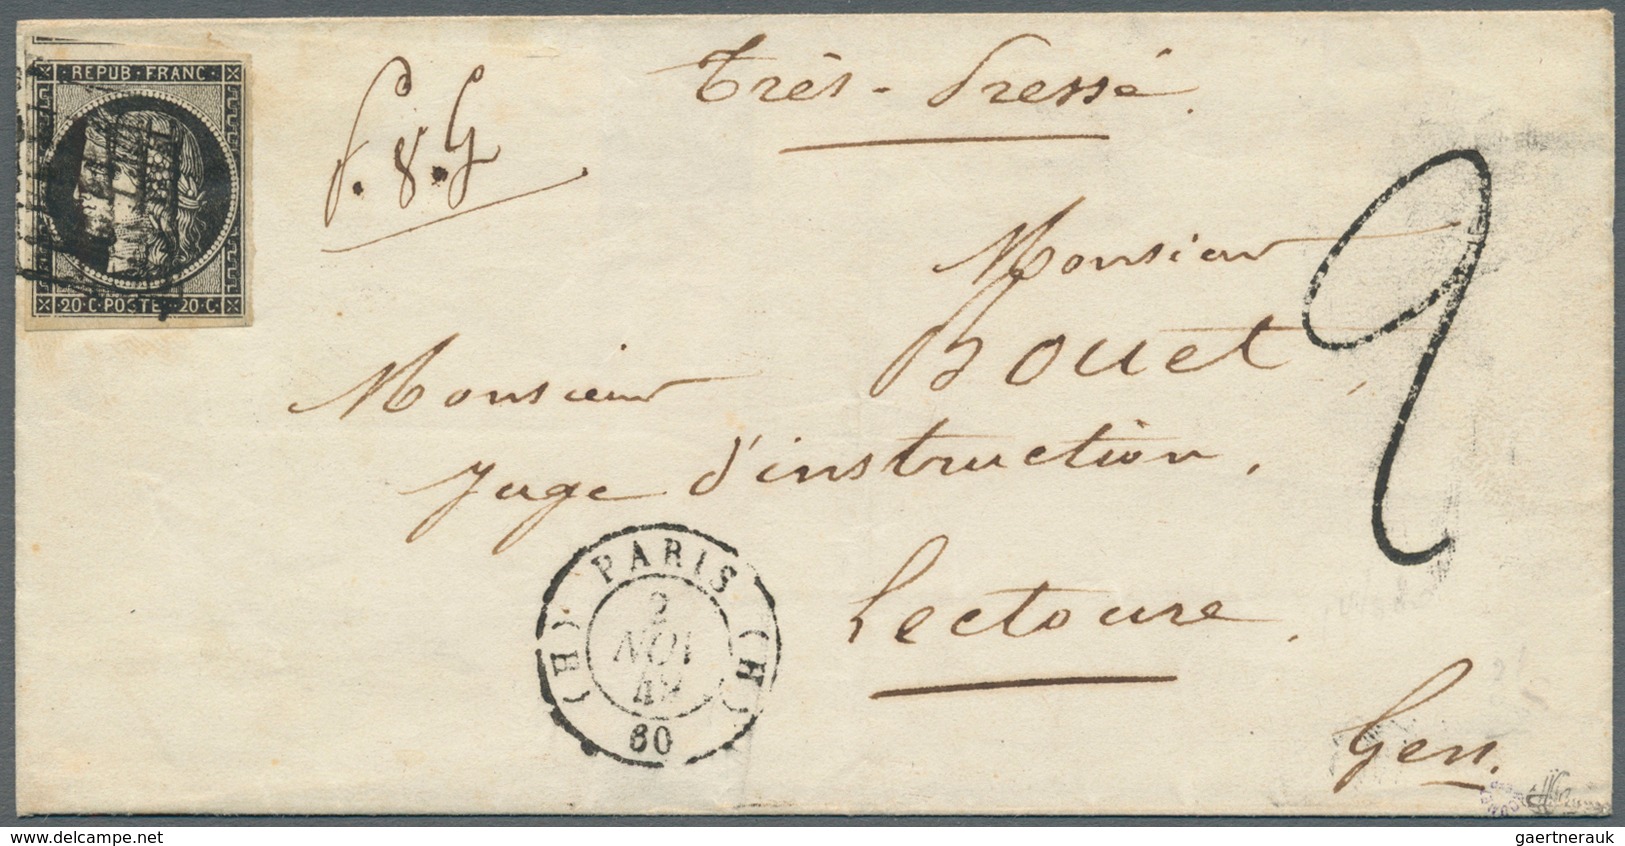 REPUB · FRANC ·
20 · C · POSTE · 20 · C ·
Très - Pressé.
f. 8. G
Monsieur
Bouet,
Monsieur
Juge d'instruction,
Lectoure,
Gers.
2
PARIS
(H) (H)
2
NOV
49
60
gaertnerauk @ delcampe.net